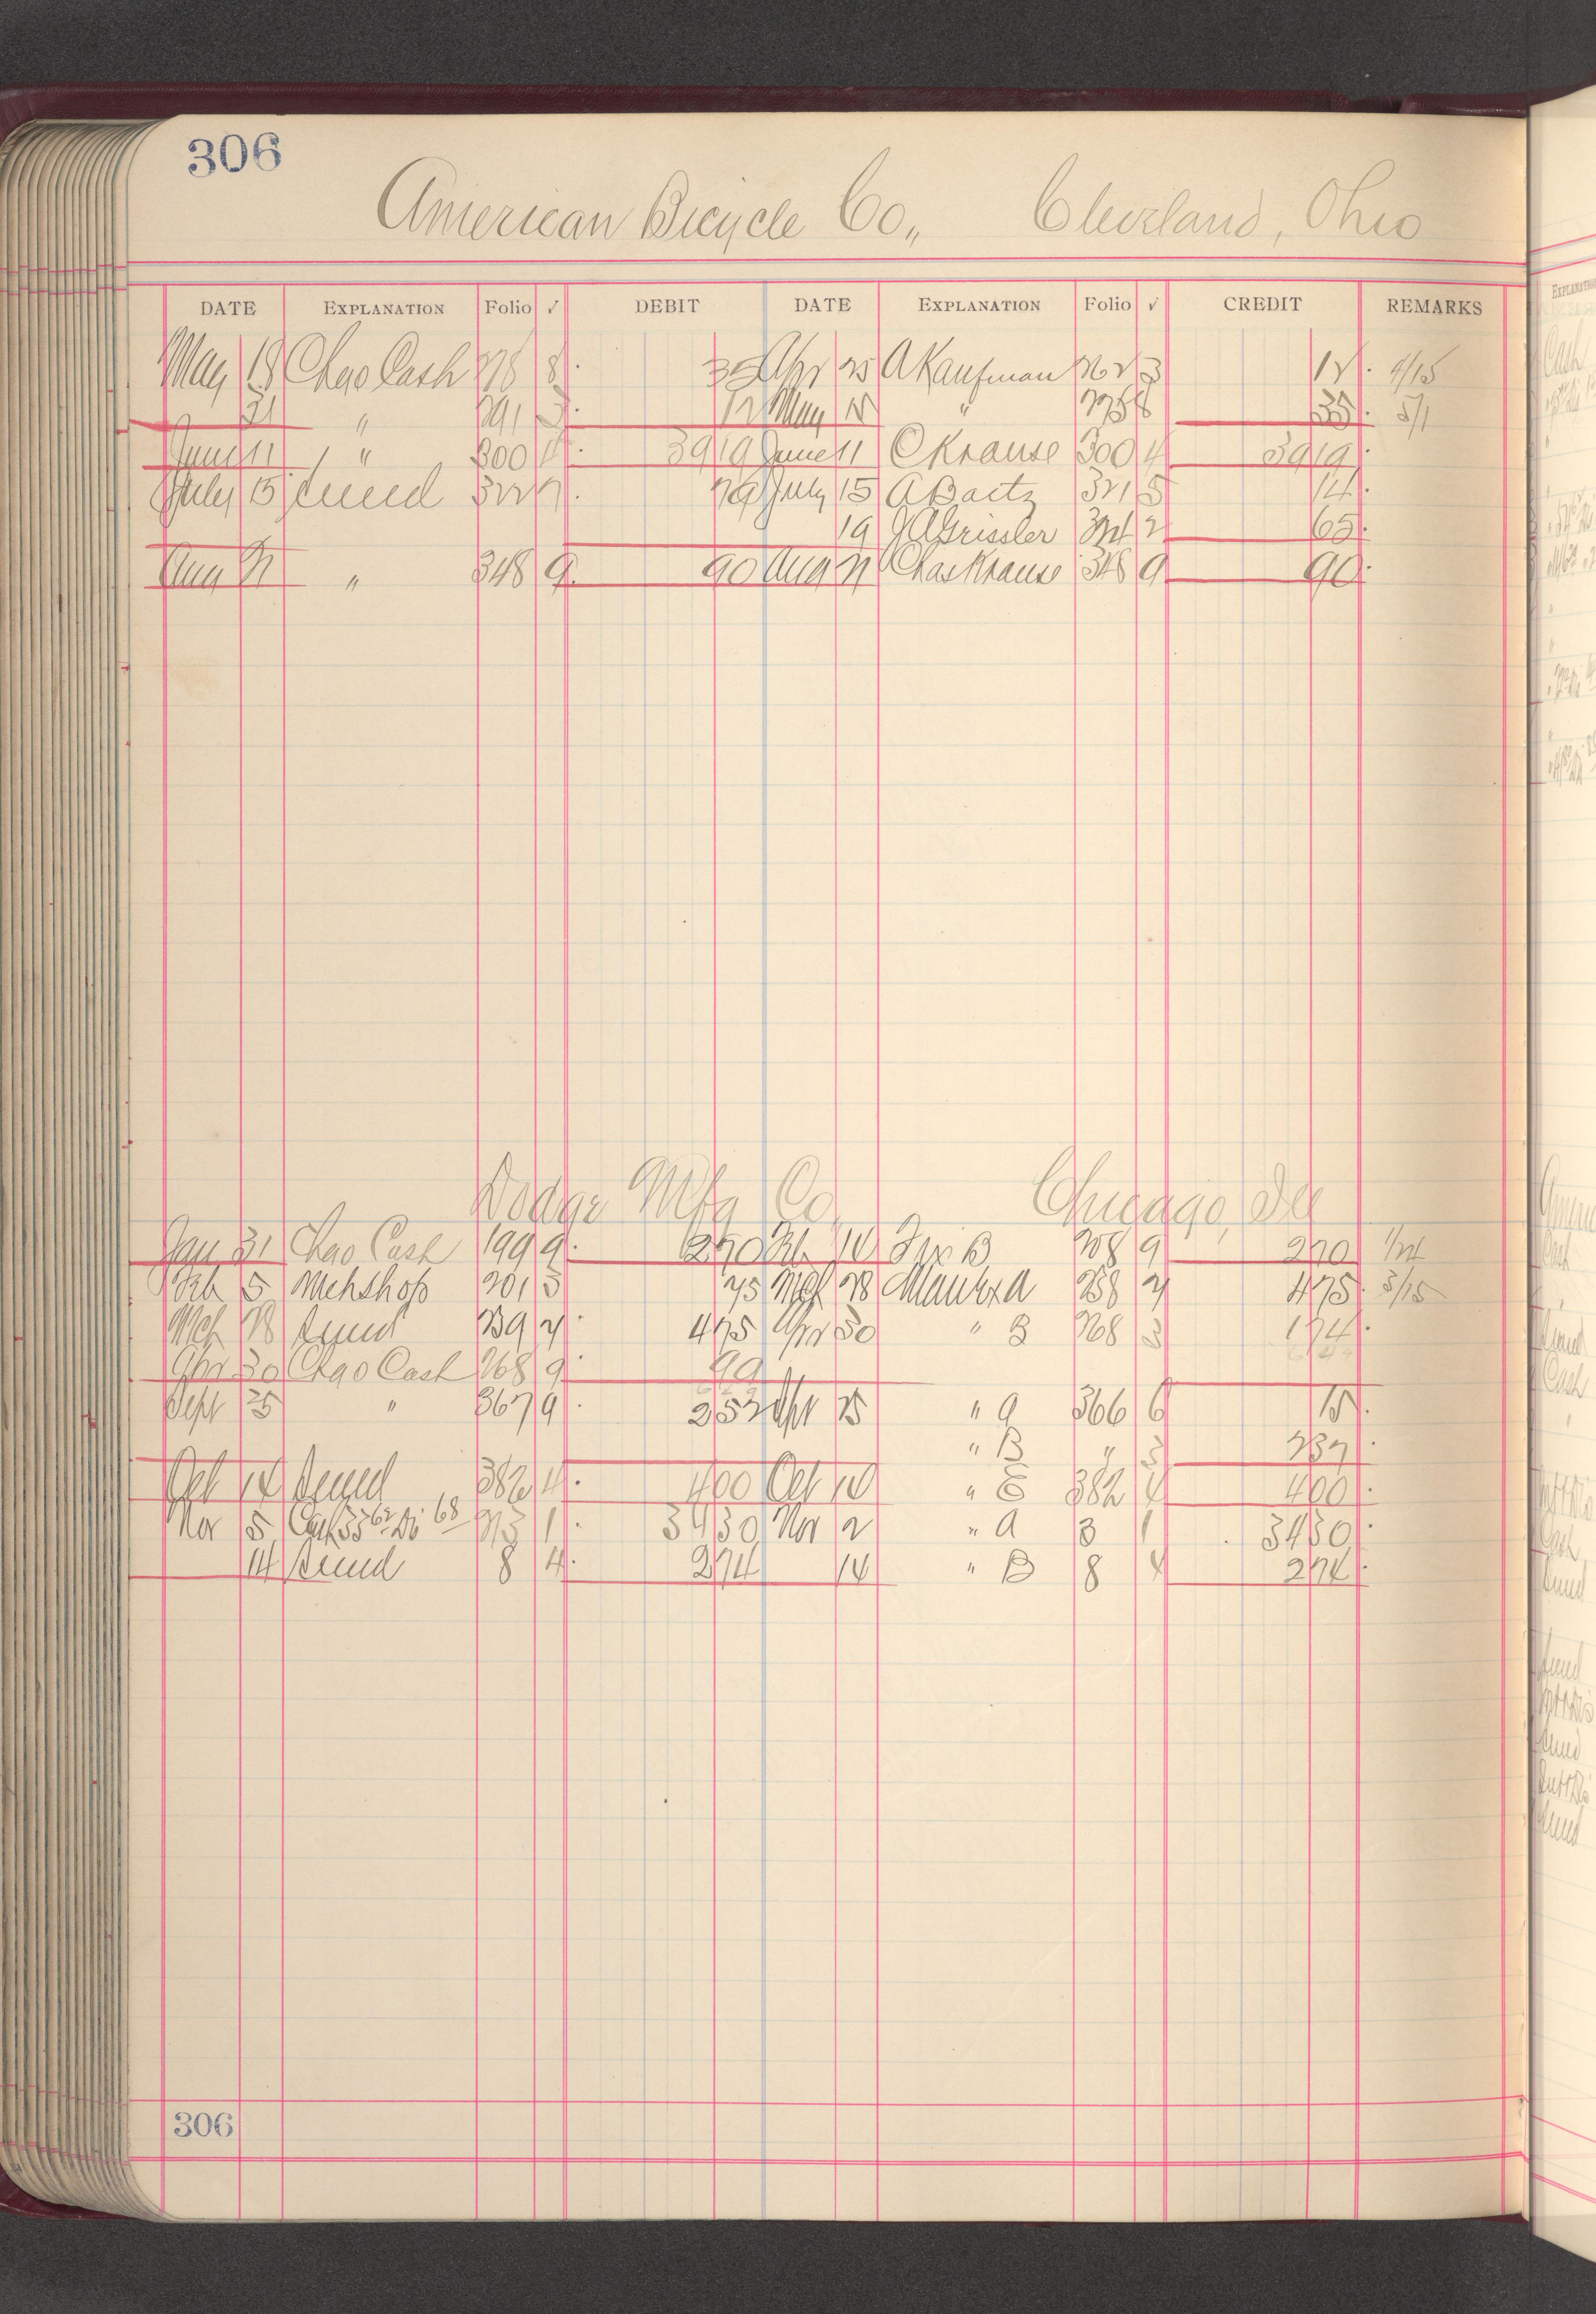 306
American Bicycle Co., Cleveland, Ohio
DATE EXPLANATION Folio √ DEBIT DATE EXPLANATION Folio √ CREDIT REMARKS
May 18 Chgo Cash 278 8 35 Apr 25 A Kaufman 262 3 12 4/15
31 " 291 3 12 May 18 " 278 8 35 5/1
June 11 " 300 4 39 19 June 11 C Krause 300 4 39 19
July 15 Sund 322 7 79 July 15 A Bartz 321 5 14
19 J A Grissler 324 2 65
Aug 21 " 348 9 90 Aug 21 Chas Krause 348 9 90
Dodge Mfg Co, Chicago, Ill
Jan 31 Chgo Cash 199 9 2 70 Feb 14 208 9 2 70 1/24
Feb 5 Mchshop 201 3 75 Mch 28 A 238 7 4 75 3/15
Mch 28 Sund 239 7 4 75 Apr 30 " B 268 3 1 74
Apr 30 Chgo Cash 268 9 99
Sept 25 " 367 9 2 52 Sept 25 " A 366 6 15
" B " 3 2 37
Oct 14 Sund 382 4 4 00 Oct 14 " E 382 4 4 00
Nov 5 1 34 30 Nov 2 " A 3 1 34 30
14 Sund 8 4 2 74 14 " B 8 4 2 74
306